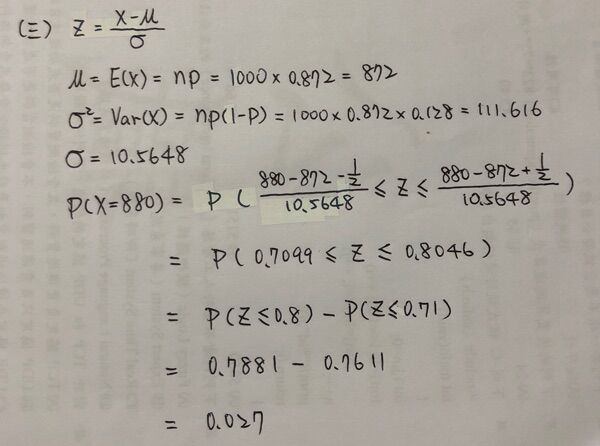 (三) Z = (X-μ)/σ
μ = E(X) = np = 1000 × 0.872 = 872
σ² = Var(X) = np(1-P) = 1000 × 0.872 × 0.128 = 111.616
σ = 10.5648
P(X=880) = P( (880-872-1/2)/10.5648 ≤ Z ≤ (880-872+1/2)/10.5648 )
= P( 0.7099 ≤ Z ≤ 0.8046 )
= P(Z≤0.8) - P(Z≤0.71)
= 0.7881 - 0.7611
= 0.027